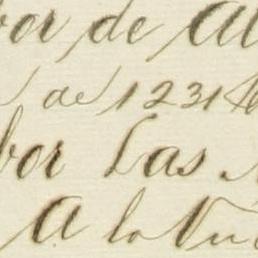 bor de Al
de 1231
bor Las
A la Vu